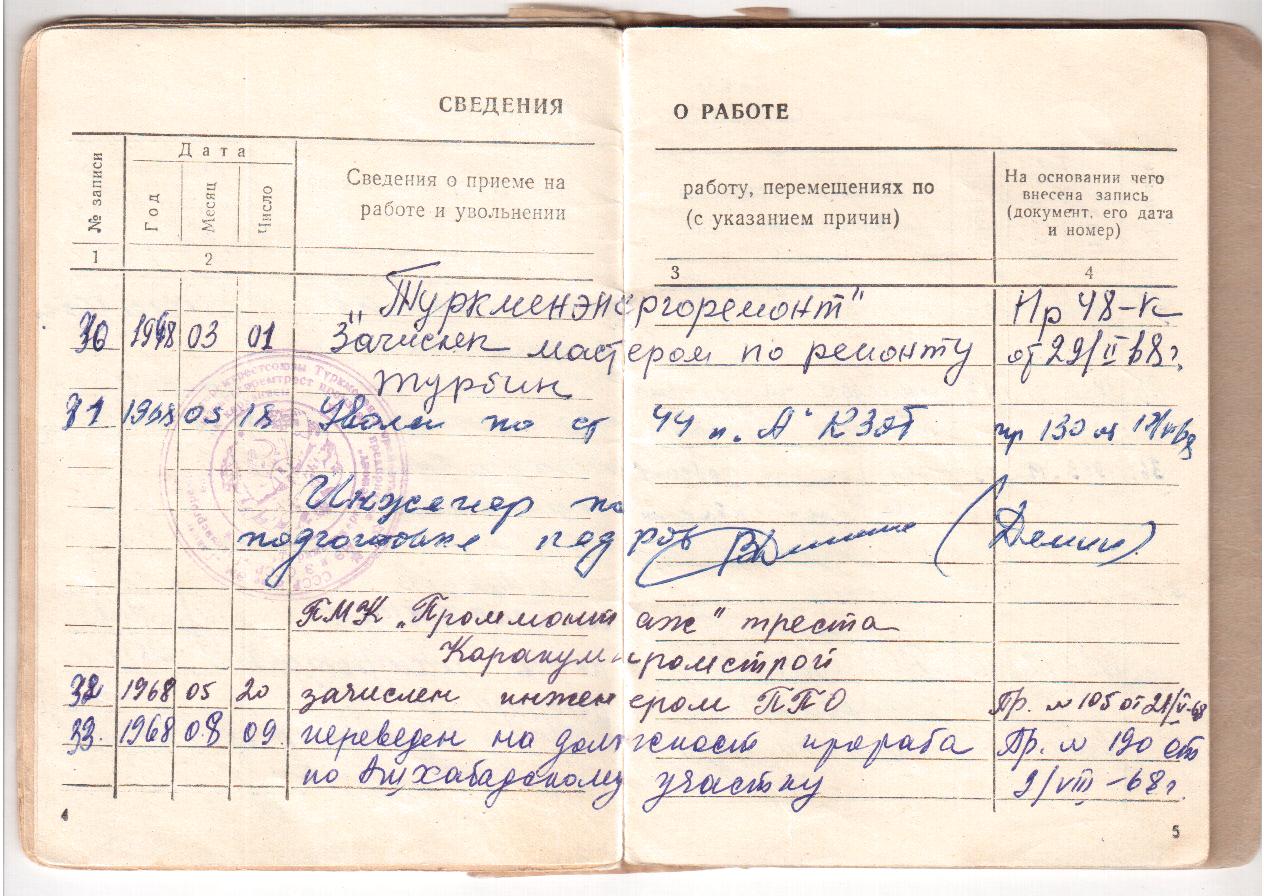 СВЕДЕНИЯ О РАБОТЕ
№ записи
Дата
Год
Месяц
Число
Сведения о приеме на работу, перемещениях по
работе и увольнении (с указанием причин)
На основании чего
внесена запись
(документ, его дата
и номер)
1 2 3 4
„Туркменэнергоремонт" Пр 48-к
30 1968 03 01 Зачислен мастером по ремонту от 29/II 68 г.
турбин
31 1968 05 18 Уволен по ст 44 п. „А" КЗОТ пр 130 от
Инженер по
подготовке кадров (Демин)
ПМК „Проммонтаж" треста
Каракумпромстрой
32 1968 05 20 зачислен инженером ППО Пр. № 105 от 21/V-68
33. 1968 08 09. переведен на должность прораба Пр. № 190 от
по Ашхабадскому участку 9/VIII-68 г.
4 5